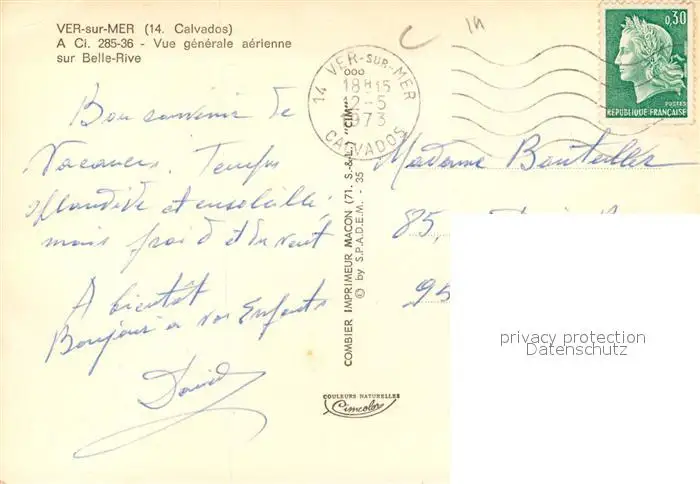 VER-sur-MER (14. Calvados)
A Ci. 285-36 - Vue générale aérienne
sur Belle-Rive
Bon souvenir de
Vacances. Temps
splendide et ensoleillé
mais froid et du vent
A bientôt
Bonjour à vos Enfants
David
COMBIER IMPRIMEUR MACON (71. S.-&-L.) "CIM"
© by S.P.A.D.E.M. - 35
COULEURS NATURELLES
Cimcolor
14 VER-SUR-MER
18H15
12-5
1973
CALVADOS
0,30
POSTES
REPUBLIQUE FRANÇAISE
Madame
85,
95
privacy protection
Datenschutz